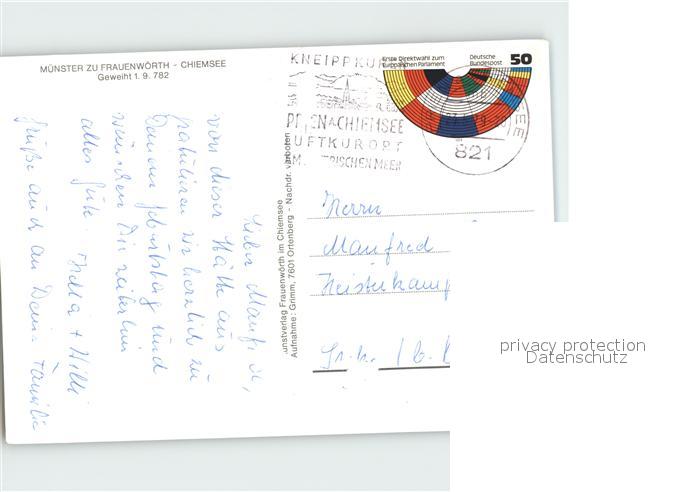 MÜNSTER ZU FRAUENWÖRTH - CHIEMSEE
Geweiht 1. 9. 782
Lieber Manfred,
von dieser Stätte aus
gratulieren wir herzlich zu
Deinem Geburtstag und
wünschen Dir weiterhin
alles Gute. + Willi
Grüße auch an Deine Familie
Kunstverlag Frauenwörth im Chiemsee
Aufnahme: Grimm, 7601 Ortenberg - Nachdr. verboten
KNEIPPKUR
PRIEN A CHIEMSEE
LUFTKURORT
AM BAYRISCHEN MEER
Erste Direktwahl zum
Europäischen Parlament
Deutsche
Bundespost
50
821
Herrn
Manfred
Heisterkamp
privacy protection
Datenschutz